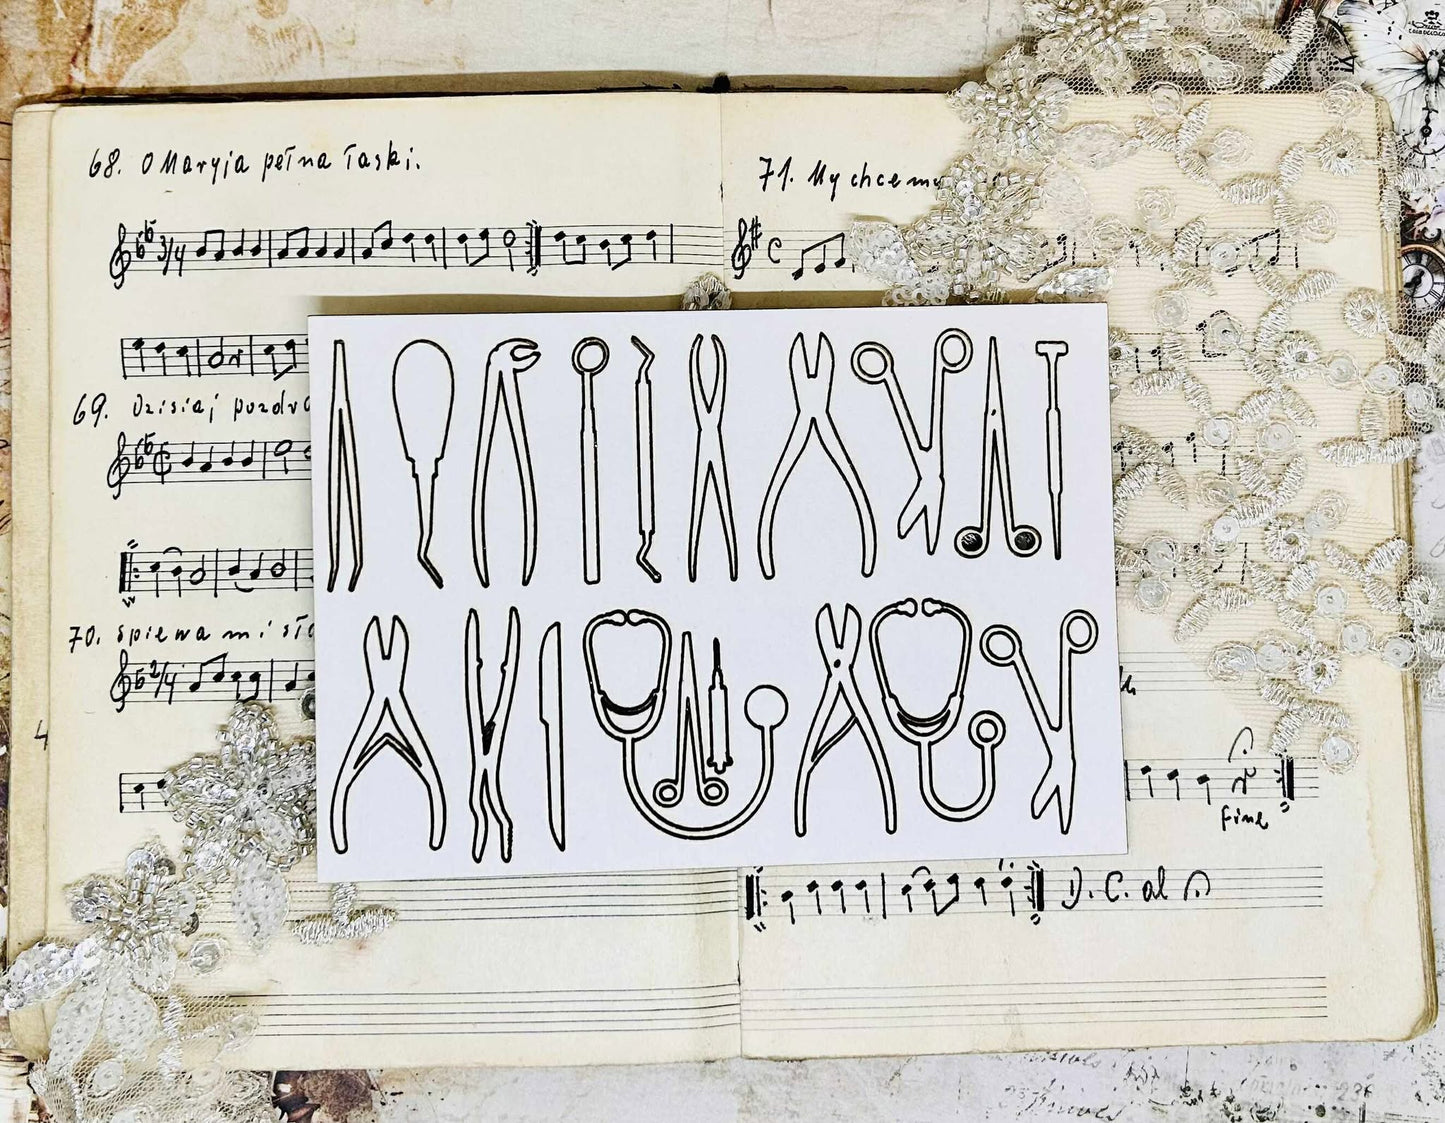 68. O Maryja pełna łaski.
3/4
69. Dzisiaj pozdro
70. śpiewa mi sło
2/4
4
71. My chcemy
C
fine
D. C. al